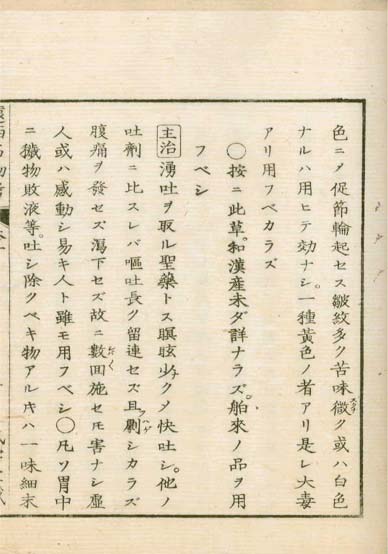 色ニメ促節輪起セス皺紋多ク苦味微ク或ハ白色
ナルハ用ヒテ効ナシ。一種黄色ノ者アリ是レ大毒
アリ用フベカラズ
◯按ニ此草。和漢産未ダ詳ナラズ。舶來ノ品ヲ用
フベシ
主治 湧吐ヲ取ル聖藥トス瞑眩少クメ快吐シ。他ノ
吐劑ニ比スレバ嘔吐長ク留連セズ且劇シカラズ
腹痛ヲ發セズ瀉下セズ故ニ數回施セ𪜈害ナシ虛
人或ハ感動シ易キ人ト雖モ用フベシ◯凡ソ胃中
ニ穢物敗液等。吐シ除クベキ物アルキハ一味細末